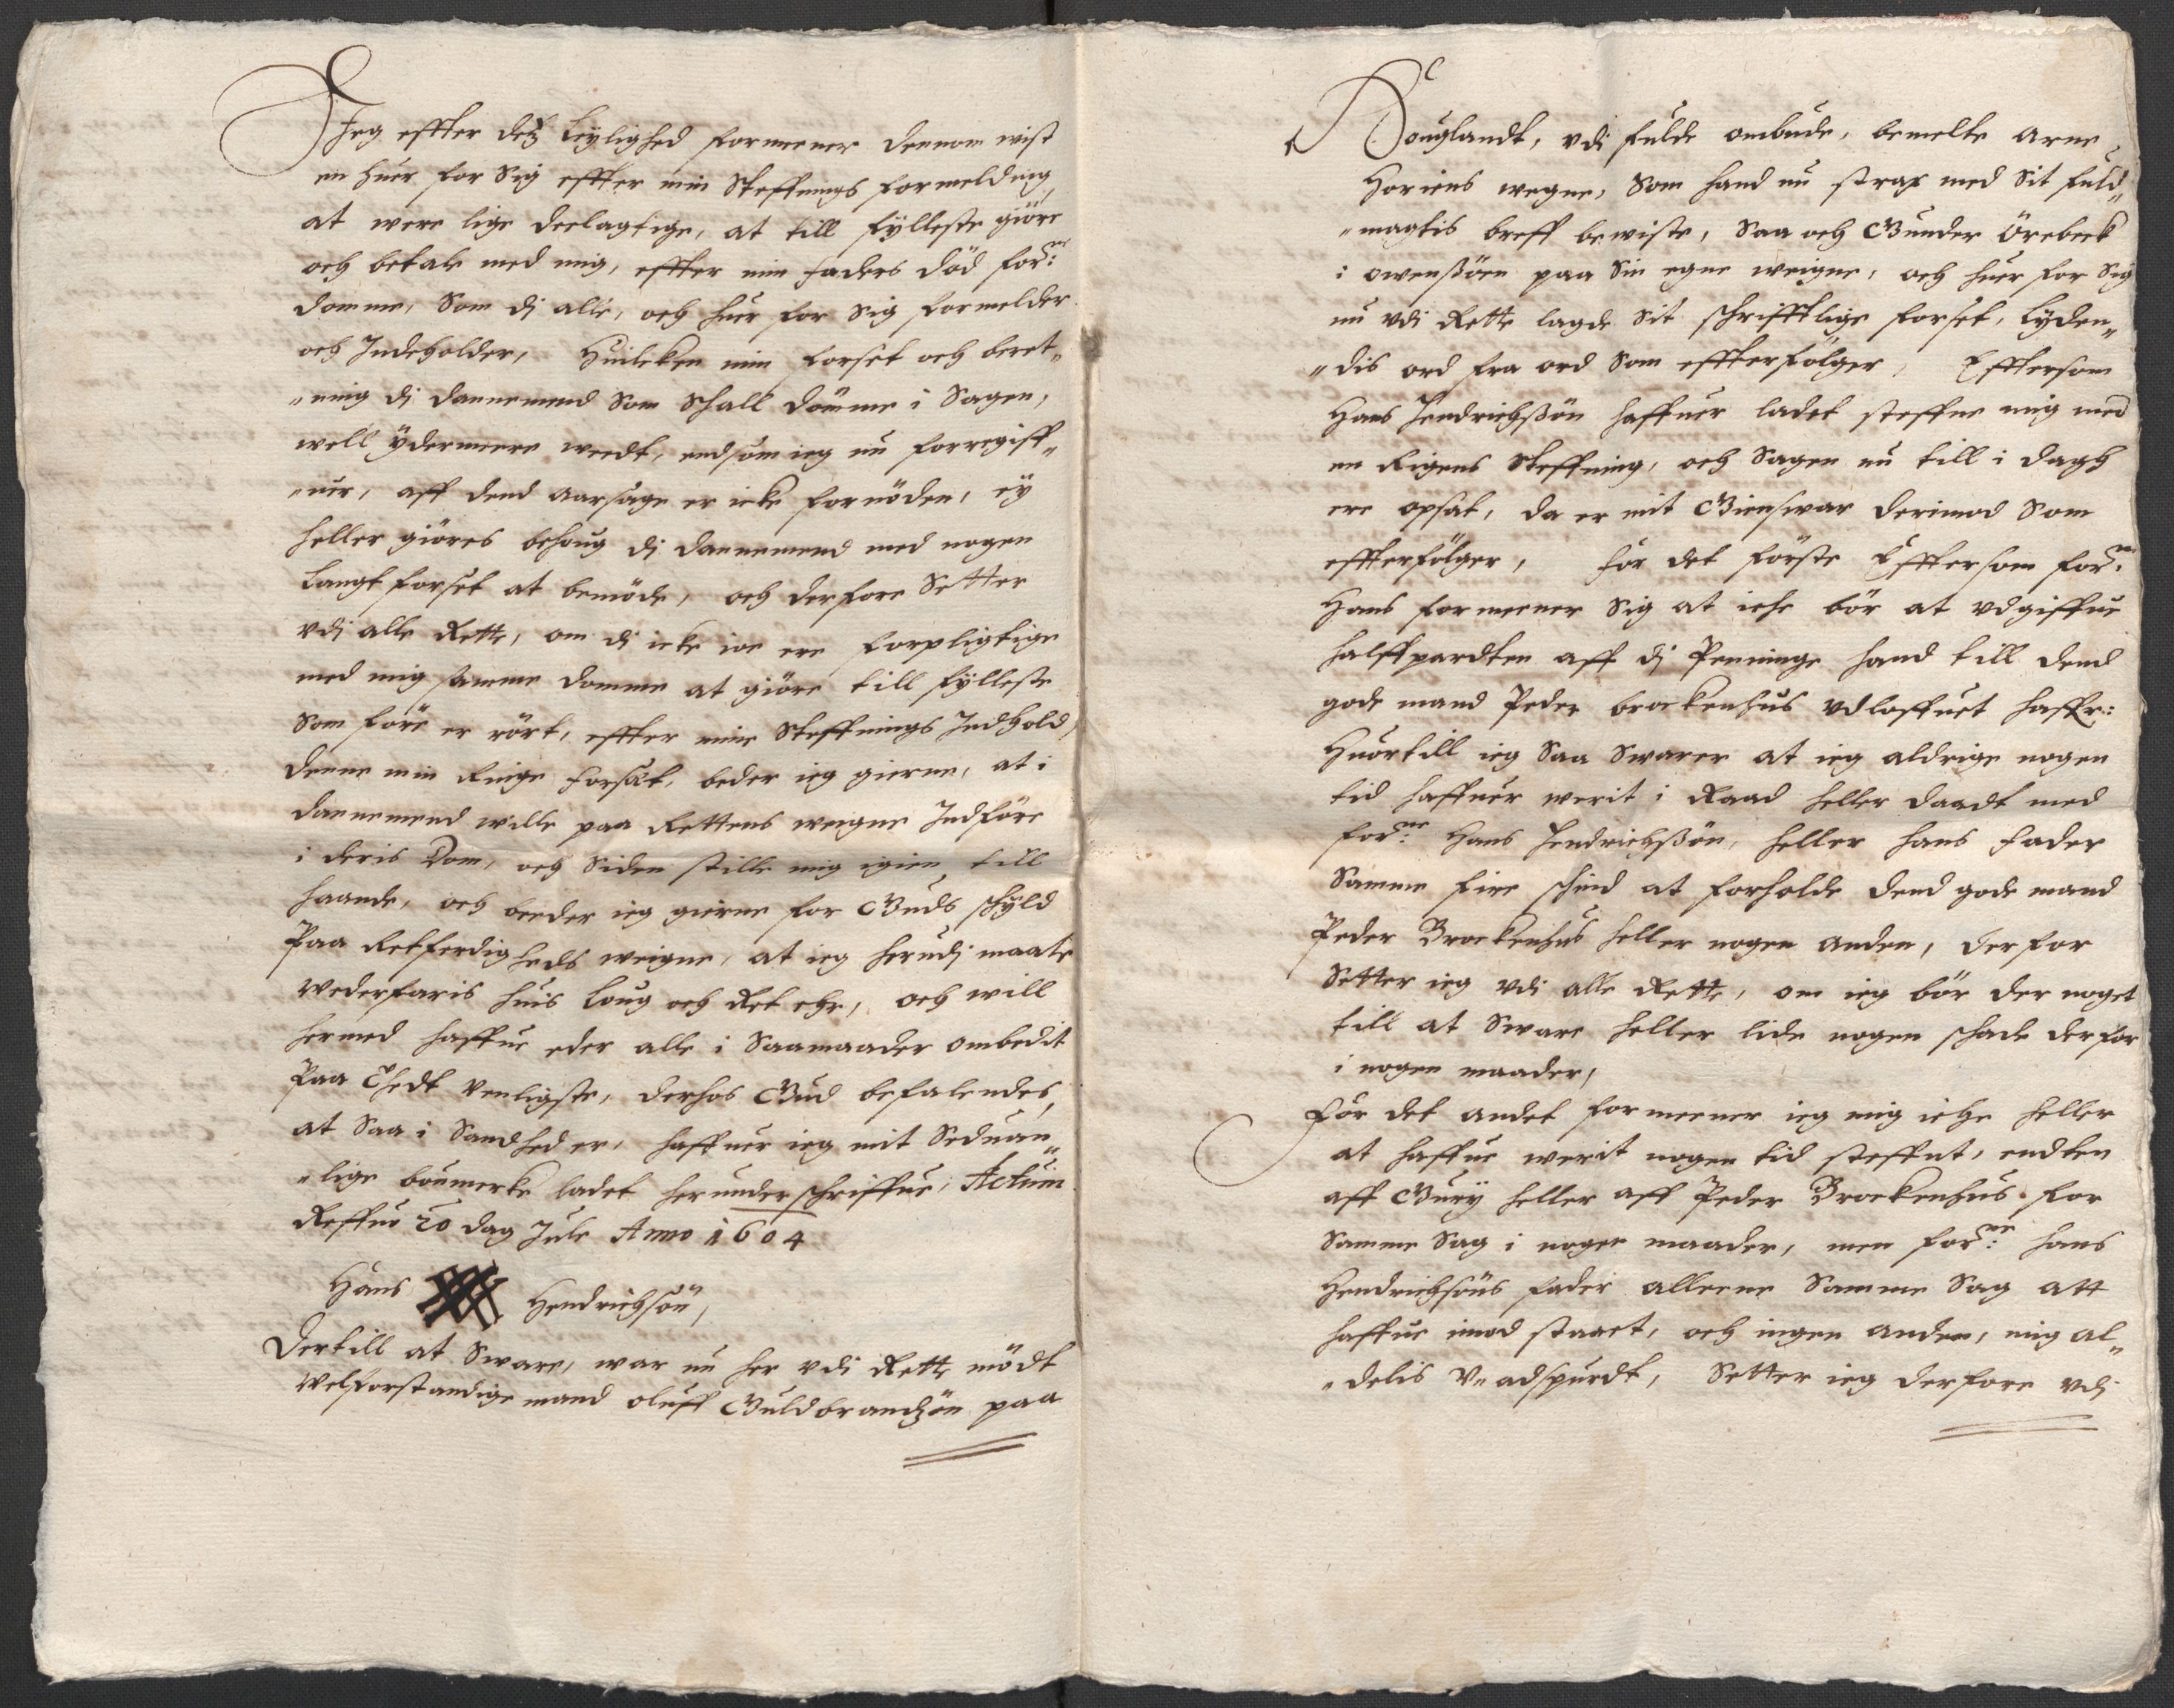 Jeg effter detz leylighed formeener dennom wist
en huer for sig effter min steffnings formelding
at were lige deelagtige, at till fylleste giöre
och betale med mig, effter min faders död for:ne
domme, Som di alle, och huer for sig formelder
och Indeholder, Huilcken min forset och beret„
„ning di dannemend som schall dömme i sagen,
well ydermeere weedt, endsom ieg nu forregiff„
„uer, aff dend aarsage er icke fornöden, ey
heller giöres behoug di dannemend med nogen
langt forset at bemöde, och derfore setter
vdi alle Rette, om di icke ioe ere forpligtige
med mig samme domme at giöre till fylleste
Som före er rört, effter mine steffnings Indhold,
denne min Ringe forsæt, beder ieg gierne, at i
dannemend wille paa Rettens weigne Indföre
i deris Dom, och siden stille mig igien till
haande, och beeder ieg gierne for Guds schyld
Paa Retferdigheds weigne, at ieg herudi maate
wederfaris huis loug och Ret ehr, och will
hermed haffue eder alle i saamaader ombedit
paa thedt venligste, derhos Gud befalendes,
at saa i sandhed er, haffuer ieg mit seduan„
„lige boumerke ladet herunder schriffue, Actum
Reffuo 20 dag Jule Anno 1604
Hans Hendrichsön,
Dertill at sware, war nu her vdi Rette mödt
welforstandige mand oluff Guldbrandzön paa
Houglandt, vdi fulde ombude, bemelte Arne
Horiens wegne, Som hand nu strax med sit fuld„
„magtis breff bewiste, Saa och Gunder Örebeck
i owensöen paa sin egne weigne, och huer for sig
nu vdi Rette lagde sit schrifftlige forset, lyden„
„dis ord fra ord som effterfölger, Efftersom
Hans Hendrichssön haffuer ladet steffne mig med
en Rigens steffning, och sagen nu till i dagh
ere opsat, da er mit Giensuar derimod som
effterfölger, for det förste Efftersom for:ne
Hans formeener sig at iche bör at vdgiffue
halffpardten aff di Penninge hand till dend
gode mand Peder brockenhus vdloffuet haffr:
Huortill ieg saa swarer at ieg aldrige nogen
tid haffuer werit i Raad heller daadt med
for:ne Hans Hendrichssön, heller hans fader
samme fire schind at forholde dend gode mand
Peder Brockenhus heller nogen anden, derfor
setter ieg vdi alle Rette, om ieg bör der noget
till at sware heller lide nogen schade derfor
i nogen maader,
For det andet formeener ieg mig iche heller
at haffue werit nogen tid steffnt, endten
aff Gury heller aff Peder Brockenhus for
samme sag i nogen maader, men for:ne hans
Hendrichsöns fader alleene samme sag att
haffue imod staaet, och ingen anden, mig al„
„delis vadspurdt, Setter ieg derfore vdi